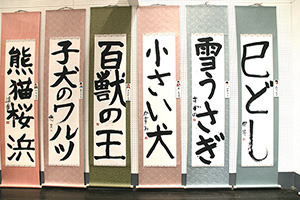 熊猫桜浜
子犬のワルツ
百獣の王
小さい犬
雪うさぎ
巳どし